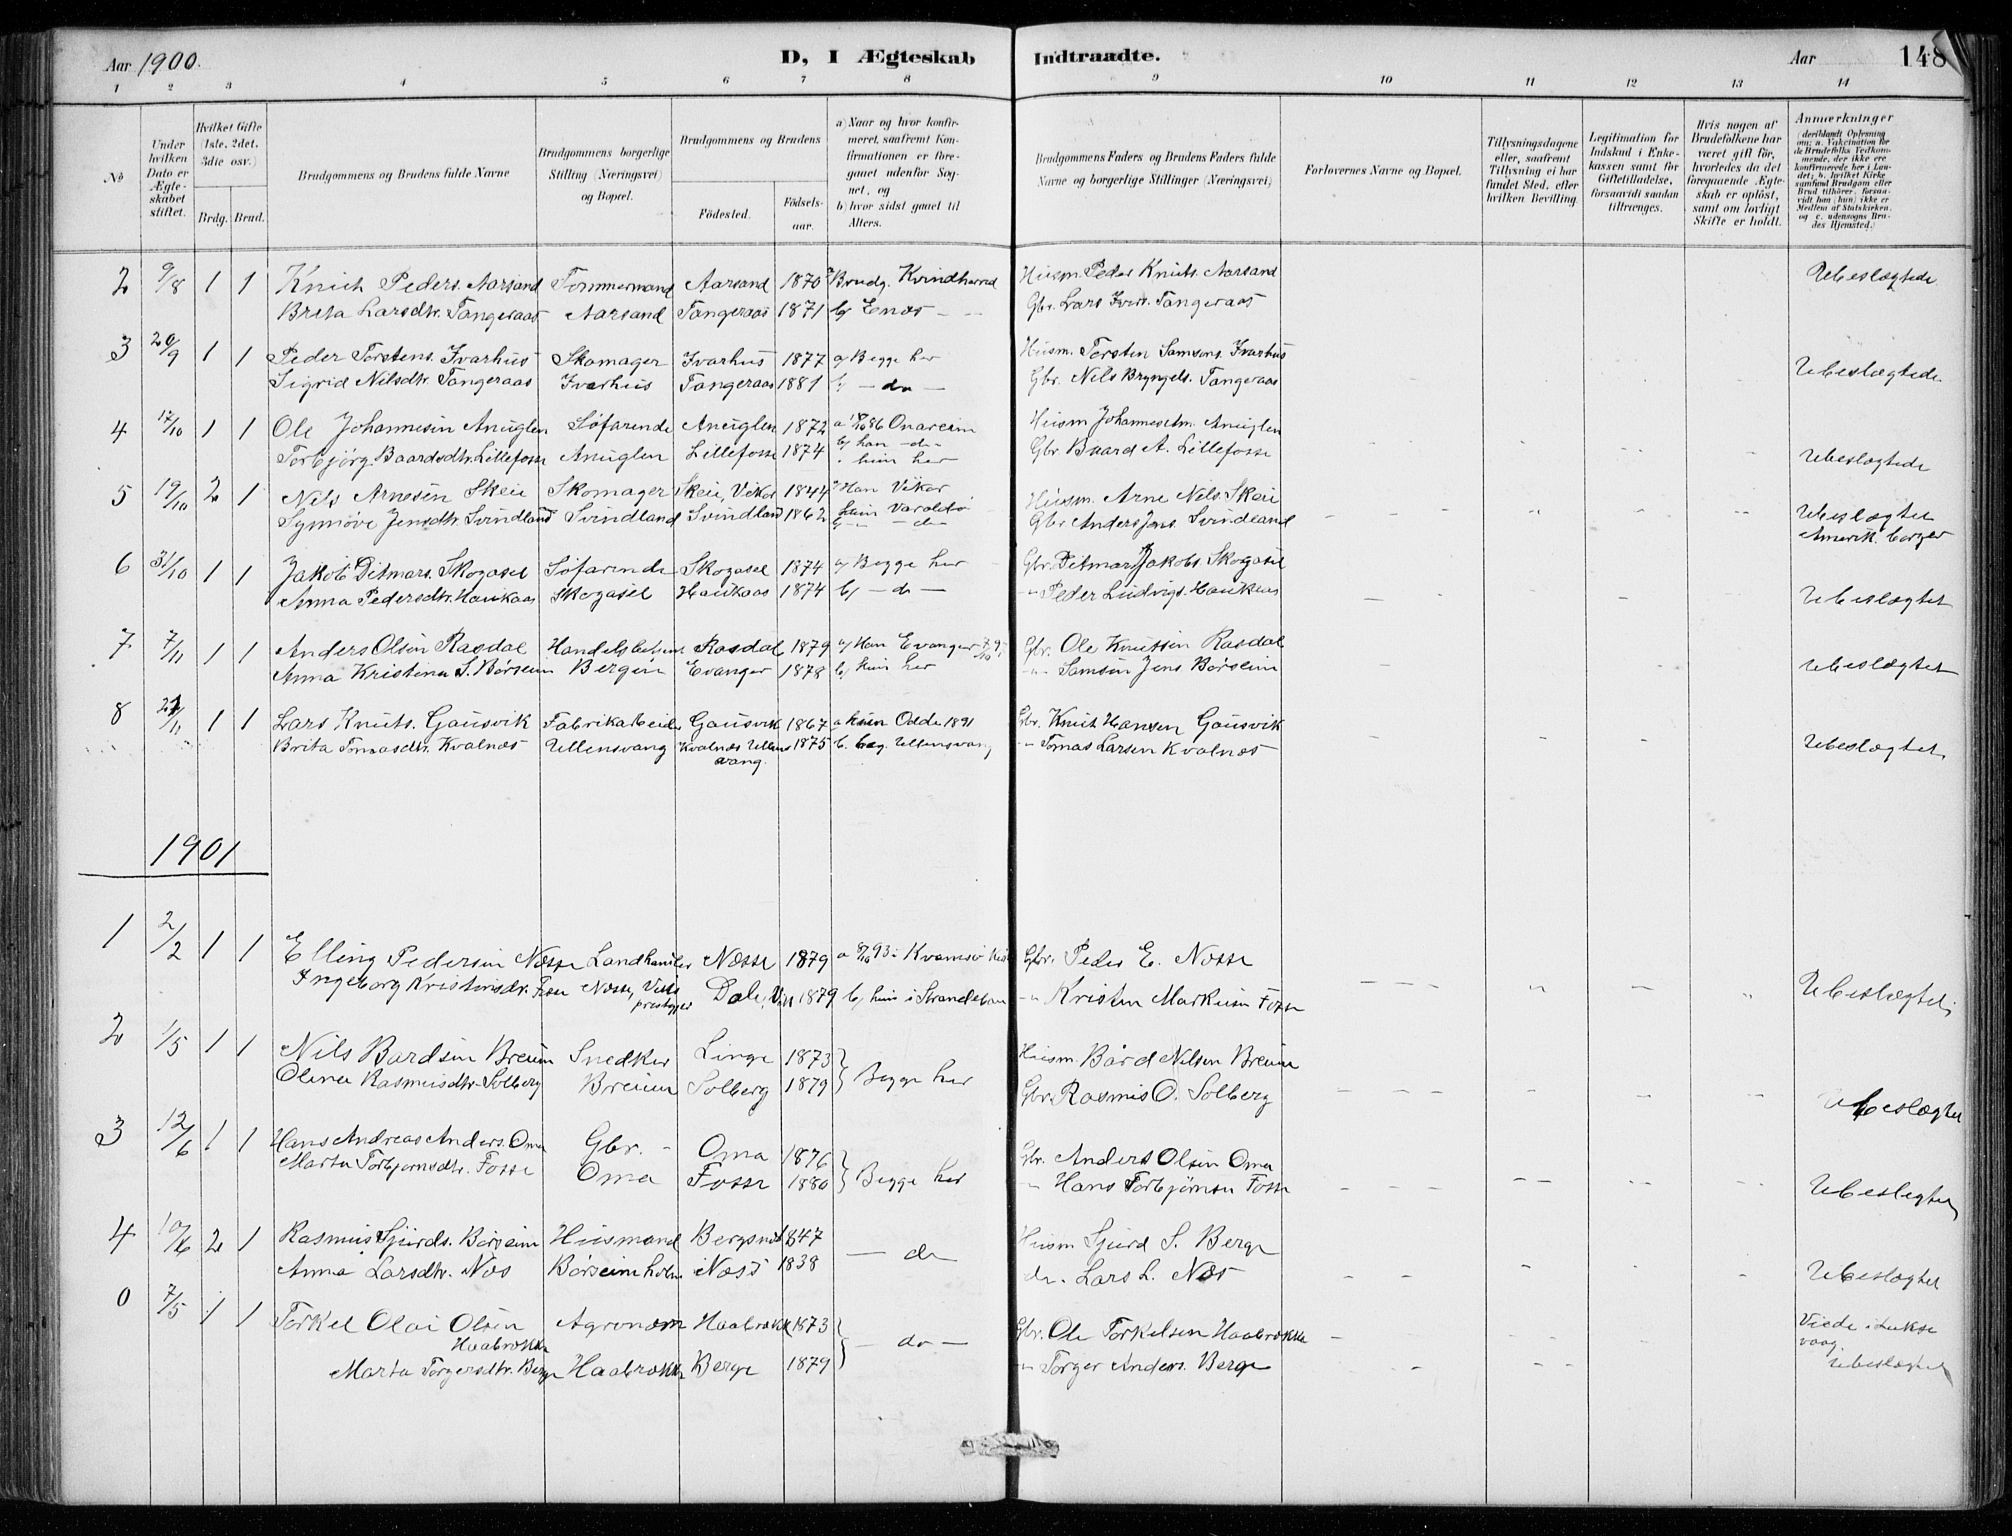 Aar 1900.
D, I Ægteskab Indtraadte.
Aar
148
1 2 3 4 5 6 7 8 9 10 11 12 13 14
No
Under hvilken Dato er Ægteskabet stiftet.
Hvilket Gifte (1ste, 2det, 3die osv.)
Brdg. Brud.
Brudgommens og Brudens fulde Navne
Brudgommens borgerlige Stilling (Næringsvei) og Bopæl.
Brudgommens og Brudens
Fødested.
Fødselsaar.
a) Naar og hvor konfirmeret, saafremt Konfirmationen er foregaaet udenfor Sognet, og
b) hvor sidst gaaet til Alters.
Brudgommens Faders og Brudens Faders fulde Navne og borgerlige Stillinger (Næringsvei)
Forlovernes Navne og Bopæl.
Tillysningsdagene eller, saafremt Tillysning ei har fundet Sted, efter hvilken Bevilling.
Legitimation for Indskud i Enkekassen samt for Giftetilladelse, forsaavidt saadan tiltrænges.
Hvis nogen af Brudefolkene har været gift før, hvorledes da det foregaaende Ægteskab er opløst, samt om lovligt Skifte er holdt.
Anmærkninger (deriblandt Oplysning om: a. Vaccination for de Brudefolks Vedkommende, der ikke ere konfirmerede her i Landet; b. hvilket Kirkesamfund Brudgom eller Brud tilhører, forsaavidt han (hun) ikke er Medlem af Statskirken, og c. udensogns Brudes Hjemsted.)
2 9/8 1 1 Knut Peders. Aarsand Tømmermand Aarsand 1870 Brudg. Kvindherred Husm. Peder Knuts. Aarsand Ubeslægtede
Brita Larsdtr. Tangeraas Aarsand Tangeraas 1871 b) Enæs Gbr. Lars Ivers. Tangeraas
3 20/9 1 1 Peder Torstens. Ivarhus Skomager Ivarhus 1877 a) Begge her Husm. Torsten Samsons. Ivarhus Ubeslægtede
Sigrid Nilsdtr. Tangeraas Ivarhus Tangeraas 1881 b) - do - Gbr. Nils Bryngels. Tangeraas
4 17/10 1 1 Ole Johannesen Anuglen Søfarende Anuglen 1872 Onareim Husm Johannes Anuglen
Torbjørg Baardsdtr. Lillefosse Anuglen Lillefosse 1874 b) han - do - hun her Gbr Baard A. Lillefosse Ubeslægtede
5 19/10 2 1 Nils Arnesen Skeie Skomager Skeie, Vikør 1844 Han Vikør Husm. Arne Nils. Skeie
Synnøve Jensdtr. Svindland Svindland Svindland 1862 hun Varaldsø Gbr Anders Jens Svindland Ubeslægtet
b - do Amerik. borger
6 31/10 1 1 Jakob Ditmars. Skogasel Søfarende Skogasel 1874 a) Begge her Gbr. Ditmar Jakobs Skogasel
Anna Pedersdtr. Haukaas Skogasel Haukaas 1874 b) - do - " Peder Ludvigs. Haukaas Ubeslægtet
7 7/11 1 1 Anders Olsen Rasdal Handelsbetjent Rasdal 1879 a) Han Evanger Gbr. Ole Knutsen Rasdal
Anna Kristina S. Børseim Bergen Evanger 1878 b) hun her " Samson Jens Børseim Ubeslægtet
8 1 1 Lars Knuts. Gausvik Fabrikarbeider Gausvik 1867 a hun Odda 1891 Gbr. Knut Hansen Gausvik
Brita Tomasdtr. Kvalnæs Ullensvang Kvalnæs Ullensvang 1875 b. beg. Ullensvang " Tomas Larsen Kvalnæs Ubeslægtet
1901
1 2/2 1 1 Elling Pedersen Næsse Landhandler Næsse 1879 93 i Kvamsø Gbr. Peder E. Næsse
Ingeborg Kristensdtr. Fosse Næsse, Viks prestegjeld Dale, 1879 b) hun i Strandebarm " Kristen Markusen Fosse Ubeslægtet
2 1/5 1 1 Nils Bårdsen Breium Snedker Linge 1873 Begge her Husm. Bård Nilsen Breium
Olena Rasmusdtr. Solberg Breium Solberg 1879 Gbr. Rasmus O. Solberg Ubeslægtet
3 12/6 1 1 Hans Andreas Anders. Oma Gbr. Oma 1876 Begge her Gbr. Anders Olsen Oma
Marta Torbjørnsdtr. Fosse Oma Fosse 1880 " Hans Torbjørnsen Fosse Ubeslegtet
4 2 1 Rasmus Sjurds. Børseim Husmand Bergsnes 1847 - do Husm Sjurd S. Berge
Anna Larsdtr. Næs Børseimholm Næss 1838 do. Lars L. Næs Ubeslægtet
0 7/5 1 1 Torkel Olai Olsen Haabrekke Agronom Haabrekke 1873 - do - Gbr. Ole Torkelsen Haabrekke Viede i Lukse
vaag
Marta Torgersdtr. Berge Haabrekke Berge 1879 " Torger Anders. Berge Ubeslægtet